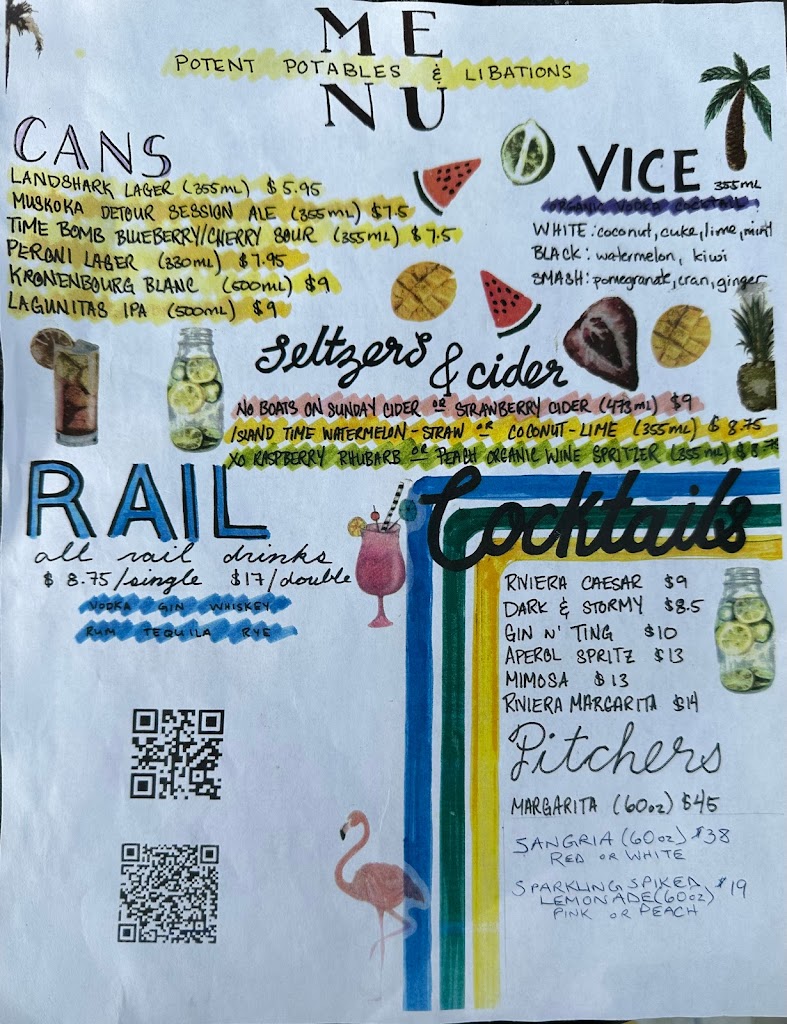 ME
POTENT POTABLES & LIBATIONS
NU
CANS
LANDSHARK LAGER (355mL) $5.95
MUSKOKA DETOUR SESSION ALE (355mL) $7.5
TIME BOMB BLUEBERRY/CHERRY SOUR (355mL) $7.5
PERONI LAGER (330mL) $7.95
KRONENBOURG BLANC (500mL) $9
LAGUNITAS IPA (500mL) $9
VICE 355mL
ORGANIC VODKA COCKTAIL
WHITE: coconut, cuke, lime, mint
BLACK: watermelon, kiwi
SMASH: pomegranate, cran, ginger
Seltzers & cider
NO BOATS ON SUNDAY CIDER OR STRAWBERRY CIDER (473mL) $9
ISLAND TIME WATERMELON-STRAW OR COCONUT-LIME (355mL) $8.75
XO RASPBERRY RHUBARB OR PEACH ORGANIC WINE SPRITZER (355mL) $8.75
RAIL
all rail drinks
$8.75/single $17/double
VODKA GIN WHISKEY
RUM TEQUILA RYE
Cocktails
RIVIERA CAESAR $9
DARK & STORMY $8.5
GIN N' TING $10
APEROL SPRITZ $13
MIMOSA $13
RIVIERA MARGARITA $14
Pitchers
MARGARITA (60oz) $45
SANGRIA (60oz) $38
RED OR WHITE
SPARKLING SPIKED
LEMONADE (60oz) $19
PINK OR PEACH